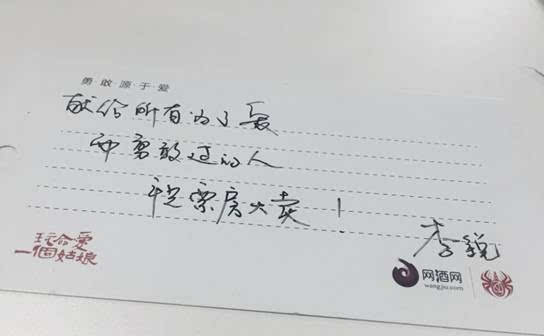 勇·敢·源·于·爱
献给所有为了爱
而勇敢过的人
祝票房大卖！
李锐
玩命爱
一個姑娘
网酒网
wangjiu.com